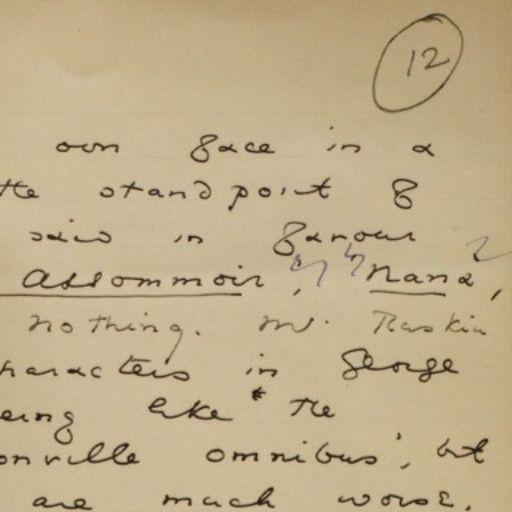 12
own face in a
the standpoint of
said in favour
Assommoir', 'Nana',
nothing. Mr. Ruskin
haracters in George
eing like * the
onville omnibus', but
are much worse.